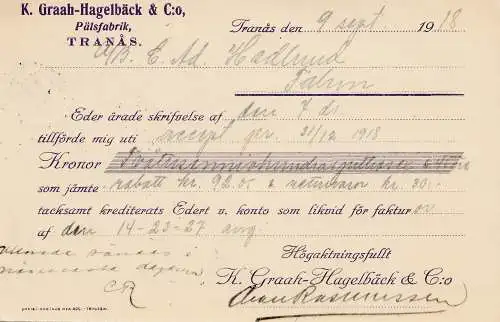 K. Graah-Hagelbäck & C:o,
Pälsfabrik,
TRANÅS.
Tranås den 9 sept 1918
A/B. C. Ad. Hedlund
Falun
Eder ärade skrifvelse af den 7 ds
tillförde mig uti accept pr. 31/12 1918
Kronor
som jämte rabatt kr. 92.05 & returvaror kr. 30.-
tacksamt krediterats Edert v. konto som likvid för faktur or
af den 14-23-27 aug.
Högaktningsfullt
K. Graah-Hagelbäck & C:o
CR